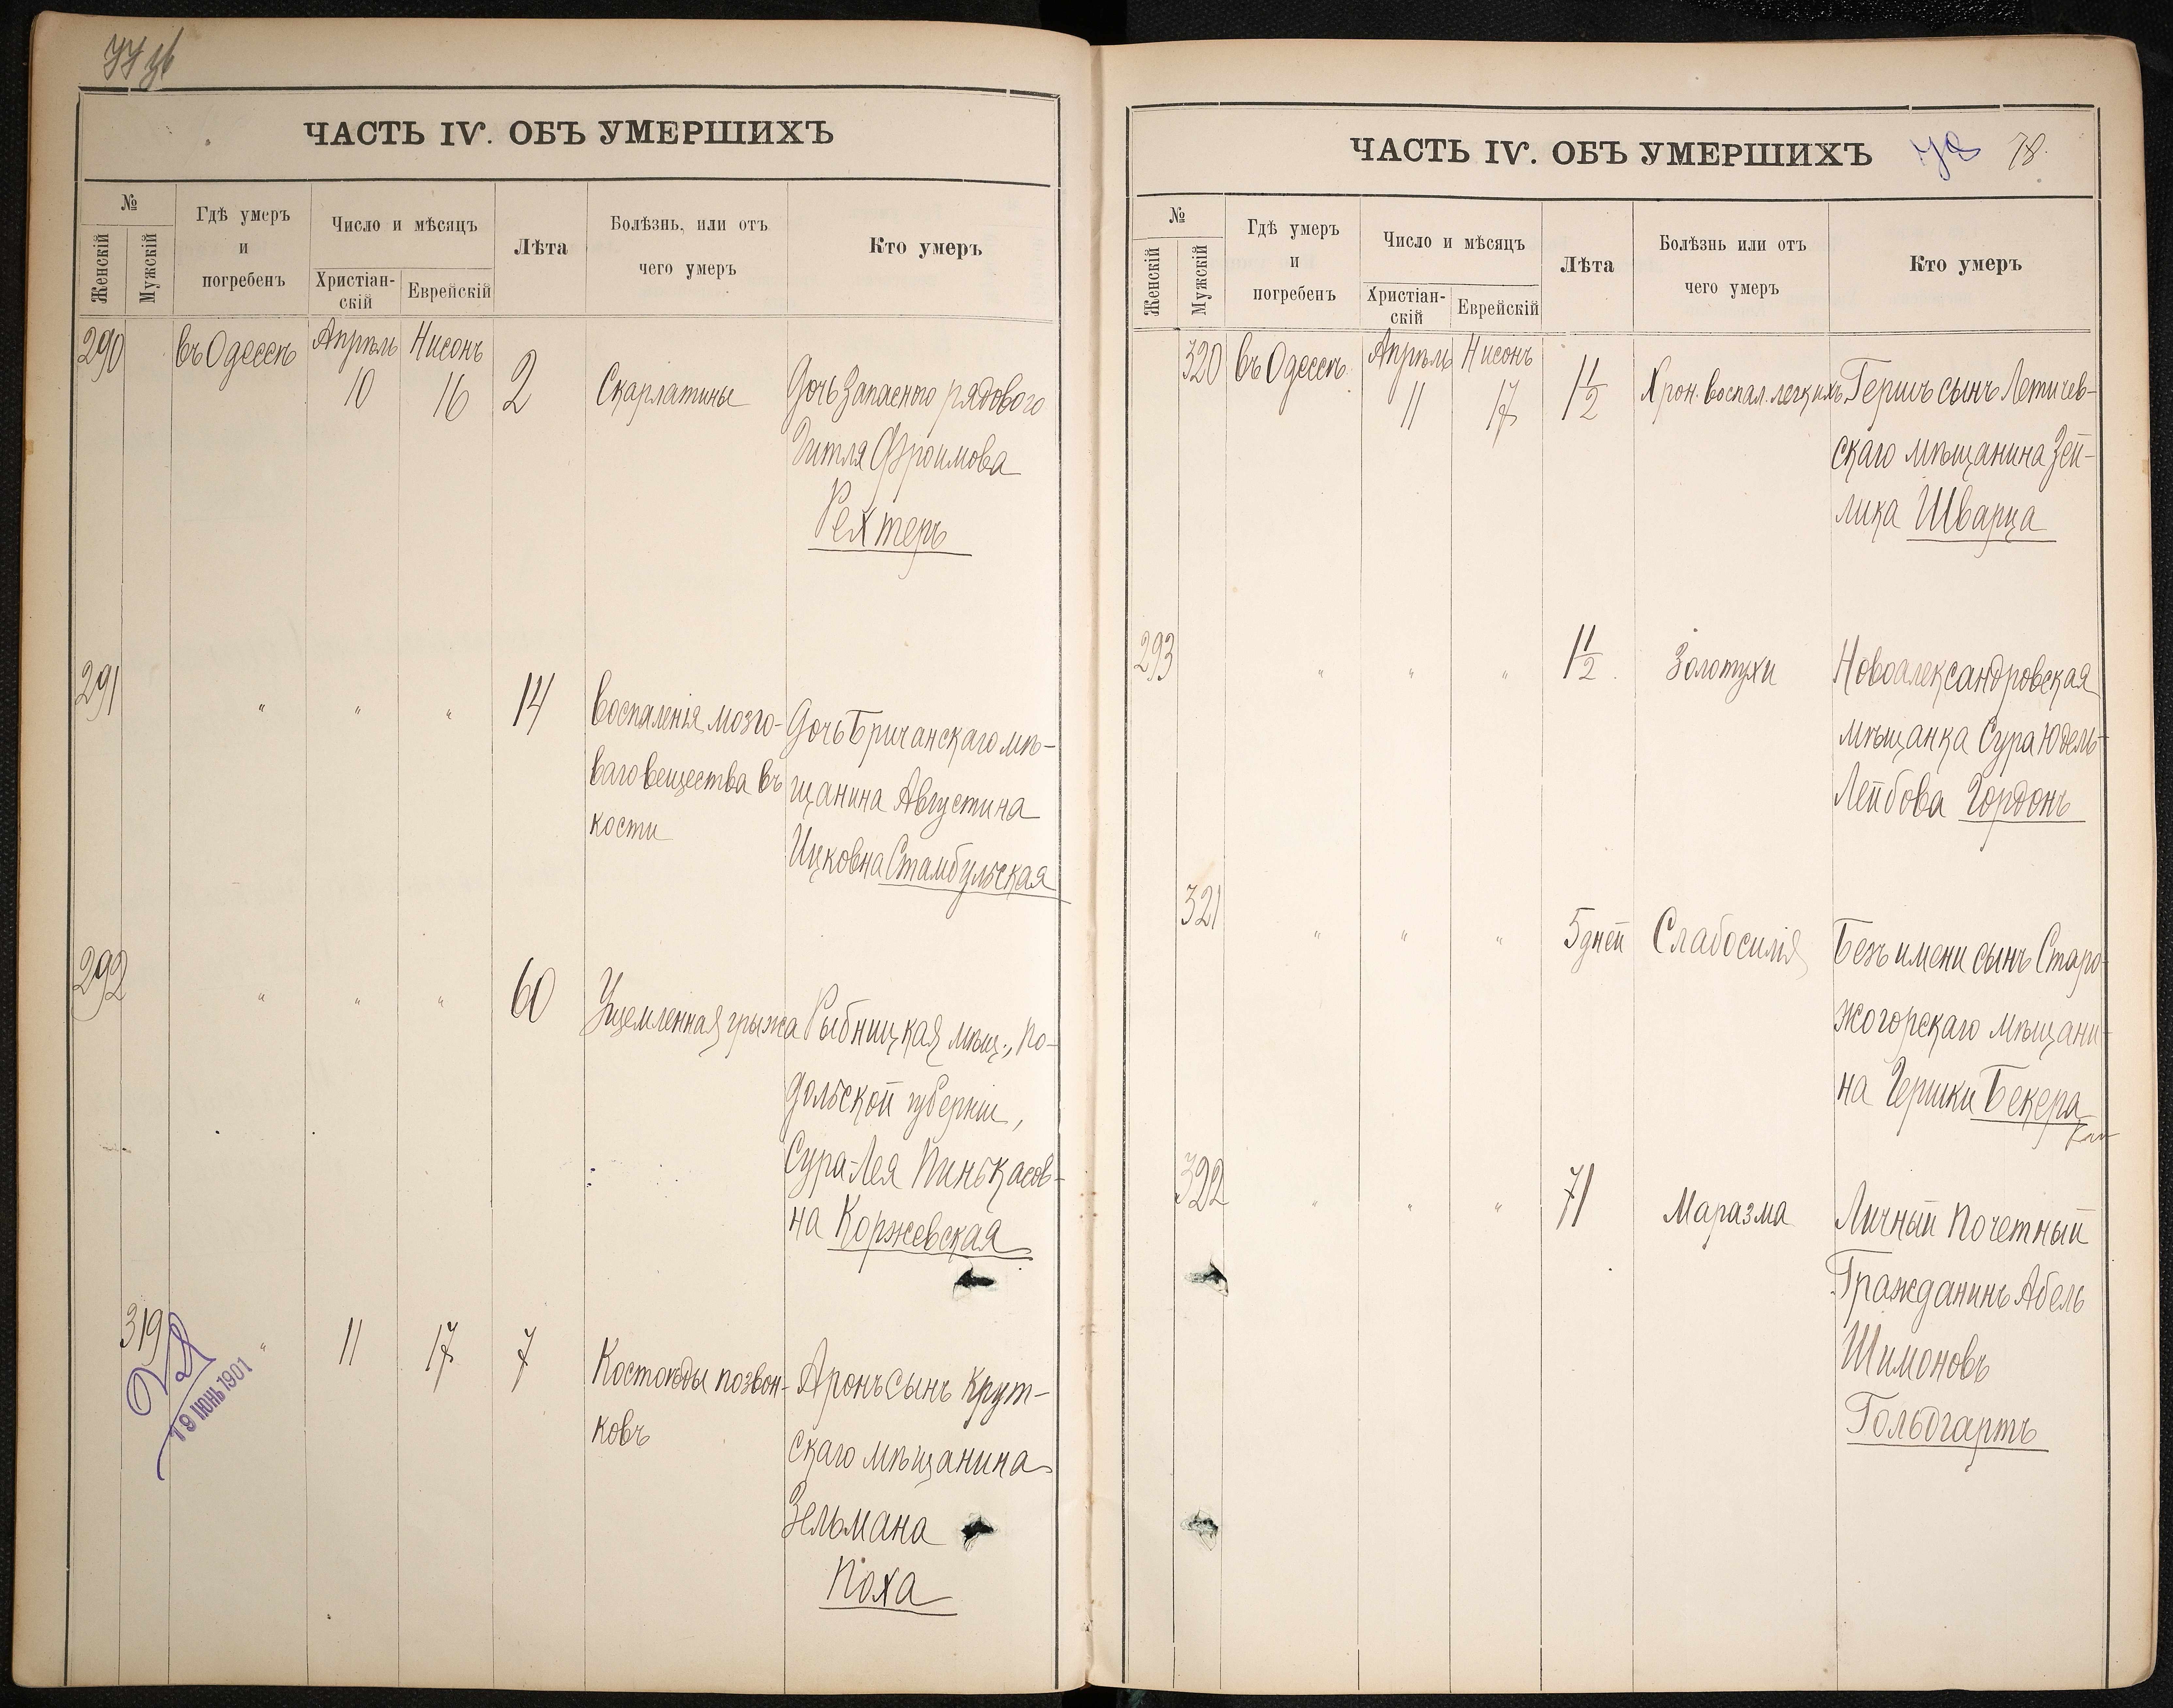 ЧАСТЬ IV. ОБЪ УМЕРШИХЪ
№
Женскій
Мужскій
Гдѣ умеръ
и
погребенъ
Число и мѣсяцъ
Христіан-
скій
Еврейскій
Лѣта
Болѣзнь, или отъ
чего умеръ
Кто умеръ
290 въ Одессѣ Апрѣль Нисонъ
10 16 2 Скарлатины Дочь Запасного рядового
Гитля Фроимова
Рехтеръ
291 " " " 14 Воспаленія мозго- Дочь Бричанскаго мѣ-
ваго вещества въ щанина Августина
кости Ицковна Стамбульская
292 " " " 60 Ущемленная грыжа Рыбницкая мѣщ., По-
дольской губерніи,
Сура-Лея Пинькасов-
на Коржевская
319 " 11 17 7 Костоѣды позвон- Аронъ сынъ Крут-
ковъ скаго мѣщанина
Зельмана
Поха
19 ІЮНЬ 1901
ЧАСТЬ IV. ОБЪ УМЕРШИХЪ 78 78.
№
Женскій
Мужскій
Гдѣ умеръ
и
погребенъ
Число и мѣсяцъ
Христіан-
скій
Еврейскій
Лѣта
Болѣзнь или отъ
чего умеръ
Кто умеръ
320 въ Одессѣ Апрѣль Нисонъ
11 17 1 1/2 Хрон. воспал. легкихъ Гершъ сынъ Летичев-
скаго мѣщанина Зей-
лика Шварца
293 " " " 1 1/2 Золотухи Новоалександровская
мѣщанка Сура Юдель-
Лейбова Гордонъ
321 " " " 5 дней Слабосилія Безъ имени сынъ Старо-
жогорскаго мѣщани-
на Гершки Бекера
322 " " " 71 Маразма Личный Почетный
Гражданинъ Абель
Шимоновъ
Гольдгартъ